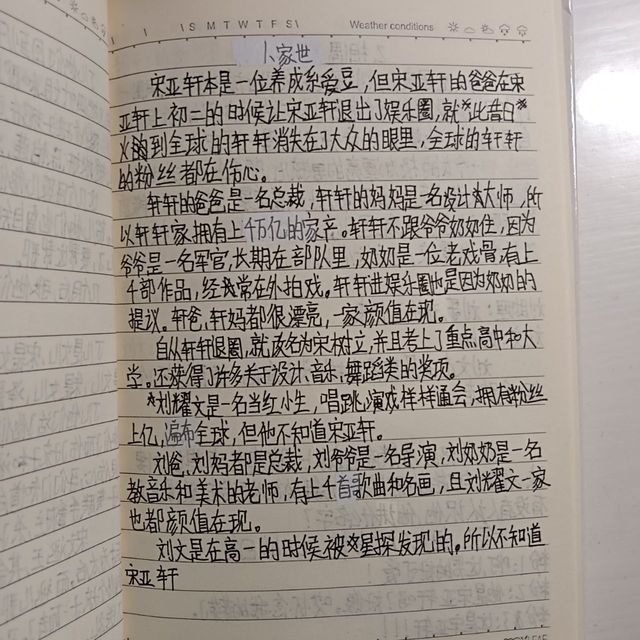 S M T W T F S
Weather conditions
1、家世
宋亚轩本是一位养成系爱豆，但宋亚轩的爸爸在宋
亚轩上初二的时候让宋亚轩退出了娱乐圈，就此昔日
火到全球的轩轩消失在了大众的眼里，全球的轩轩
的粉丝都在伤心。
轩轩的爸爸是一名总裁，轩轩的妈妈是一名设计大师，所
以轩轩家拥有上千万亿的家产。轩轩不跟爷爷奶奶住，因为
爷爷是一名军官，长期在部队里，奶奶是一位老戏骨，有上
千部作品，经常在外拍戏。轩轩进娱乐圈也是因为奶奶的
提议。轩爸、轩妈都很漂亮，一家颜值在现。
自从轩轩退圈，就改名为宋树立，并且考上了重点高中和大
堂。还获得了许多关于设计、音乐、舞蹈类的奖项。
刘耀文是一名当红小生，唱跳演戏样样通会，拥有粉丝
上亿，遍布全球，但他不知道宋亚轩。
刘爸、刘妈都是总裁，刘爷爷是一名导演，刘奶奶是一名
教音乐和美术的老师，有上千首歌曲和名画，且刘耀文一家
也都颜值在现。
刘文是在高一的时候被星探发现的。所以不知道
宋亚轩